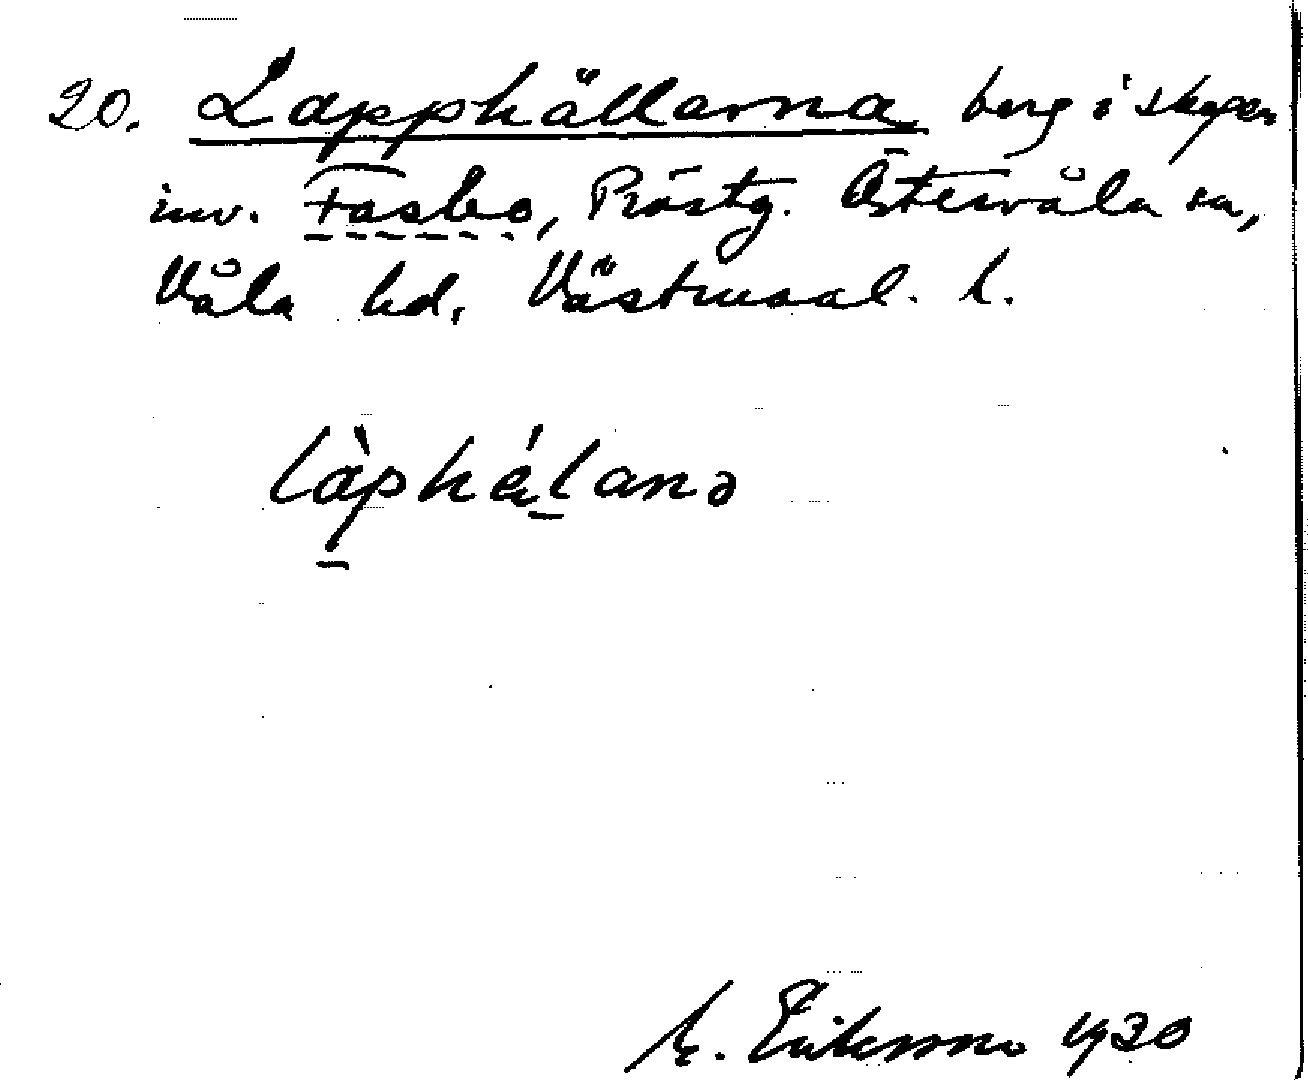 20. Lapphällarna berg i skogen
inv. Fasbo, Prästg. Östervåla sn,
Våla hd. Västmanl. l.
làphǽlanə
M. Eriksson 1930